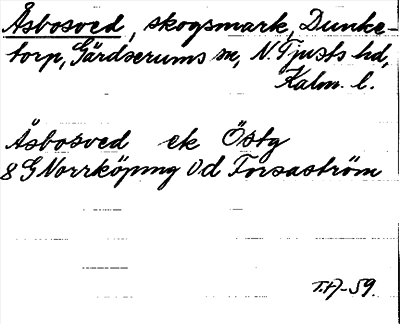 Åsbosved, skogsmark, Dunke-
torp, Gärdserums sn, N. Tjusts hd,
Kalm. l.
Åsbosved ek Östg
8 G Norrköping 0d Forsaström
T.A-59.